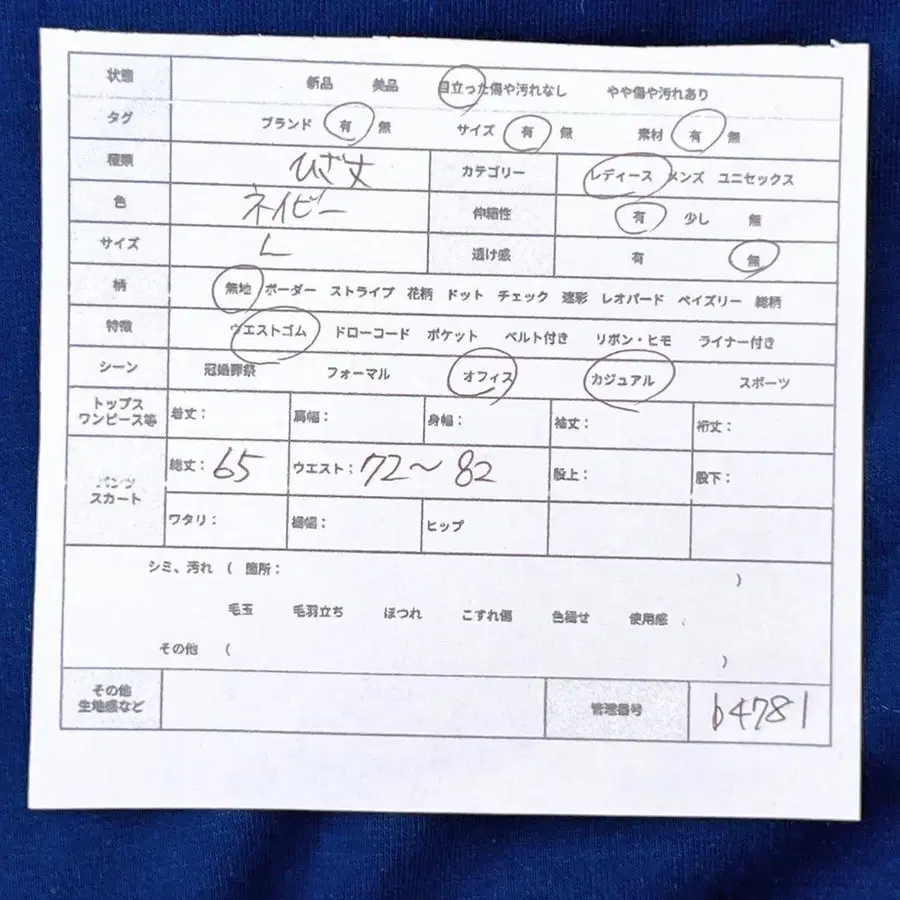 状態 新品 美品 目立った傷や汚れなし やや傷や汚れあり
タグ ブランド 有 無 サイズ 有 無 素材 有 無
種類 ひざ丈 カテゴリー レディース メンズ ユニセックス
色 ネイビー 伸縮性 有 少し 無
サイズ L 透け感 有 無
柄 無地 ボーダー ストライプ 花柄 ドット チェック 迷彩 レオパード ペイズリー 総柄
特徴 ウエストゴム ドローコード ポケット ベルト付き リボン・ヒモ ライナー付き
シーン 冠婚葬祭 フォーマル オフィス カジュアル スポーツ
トップス
ワンピース等 着丈: 肩幅: 身幅: 袖丈: 裄丈:
パンツ
スカート 総丈: 65 ウエスト: 72〜82 股上: 股下:
ワタリ: 裾幅: ヒップ
シミ、汚れ ( 箇所: )
毛玉 毛羽立ち ほつれ こすれ傷 色褪せ 使用感
その他 ( )
その他
生地感など 管理番号 b4781